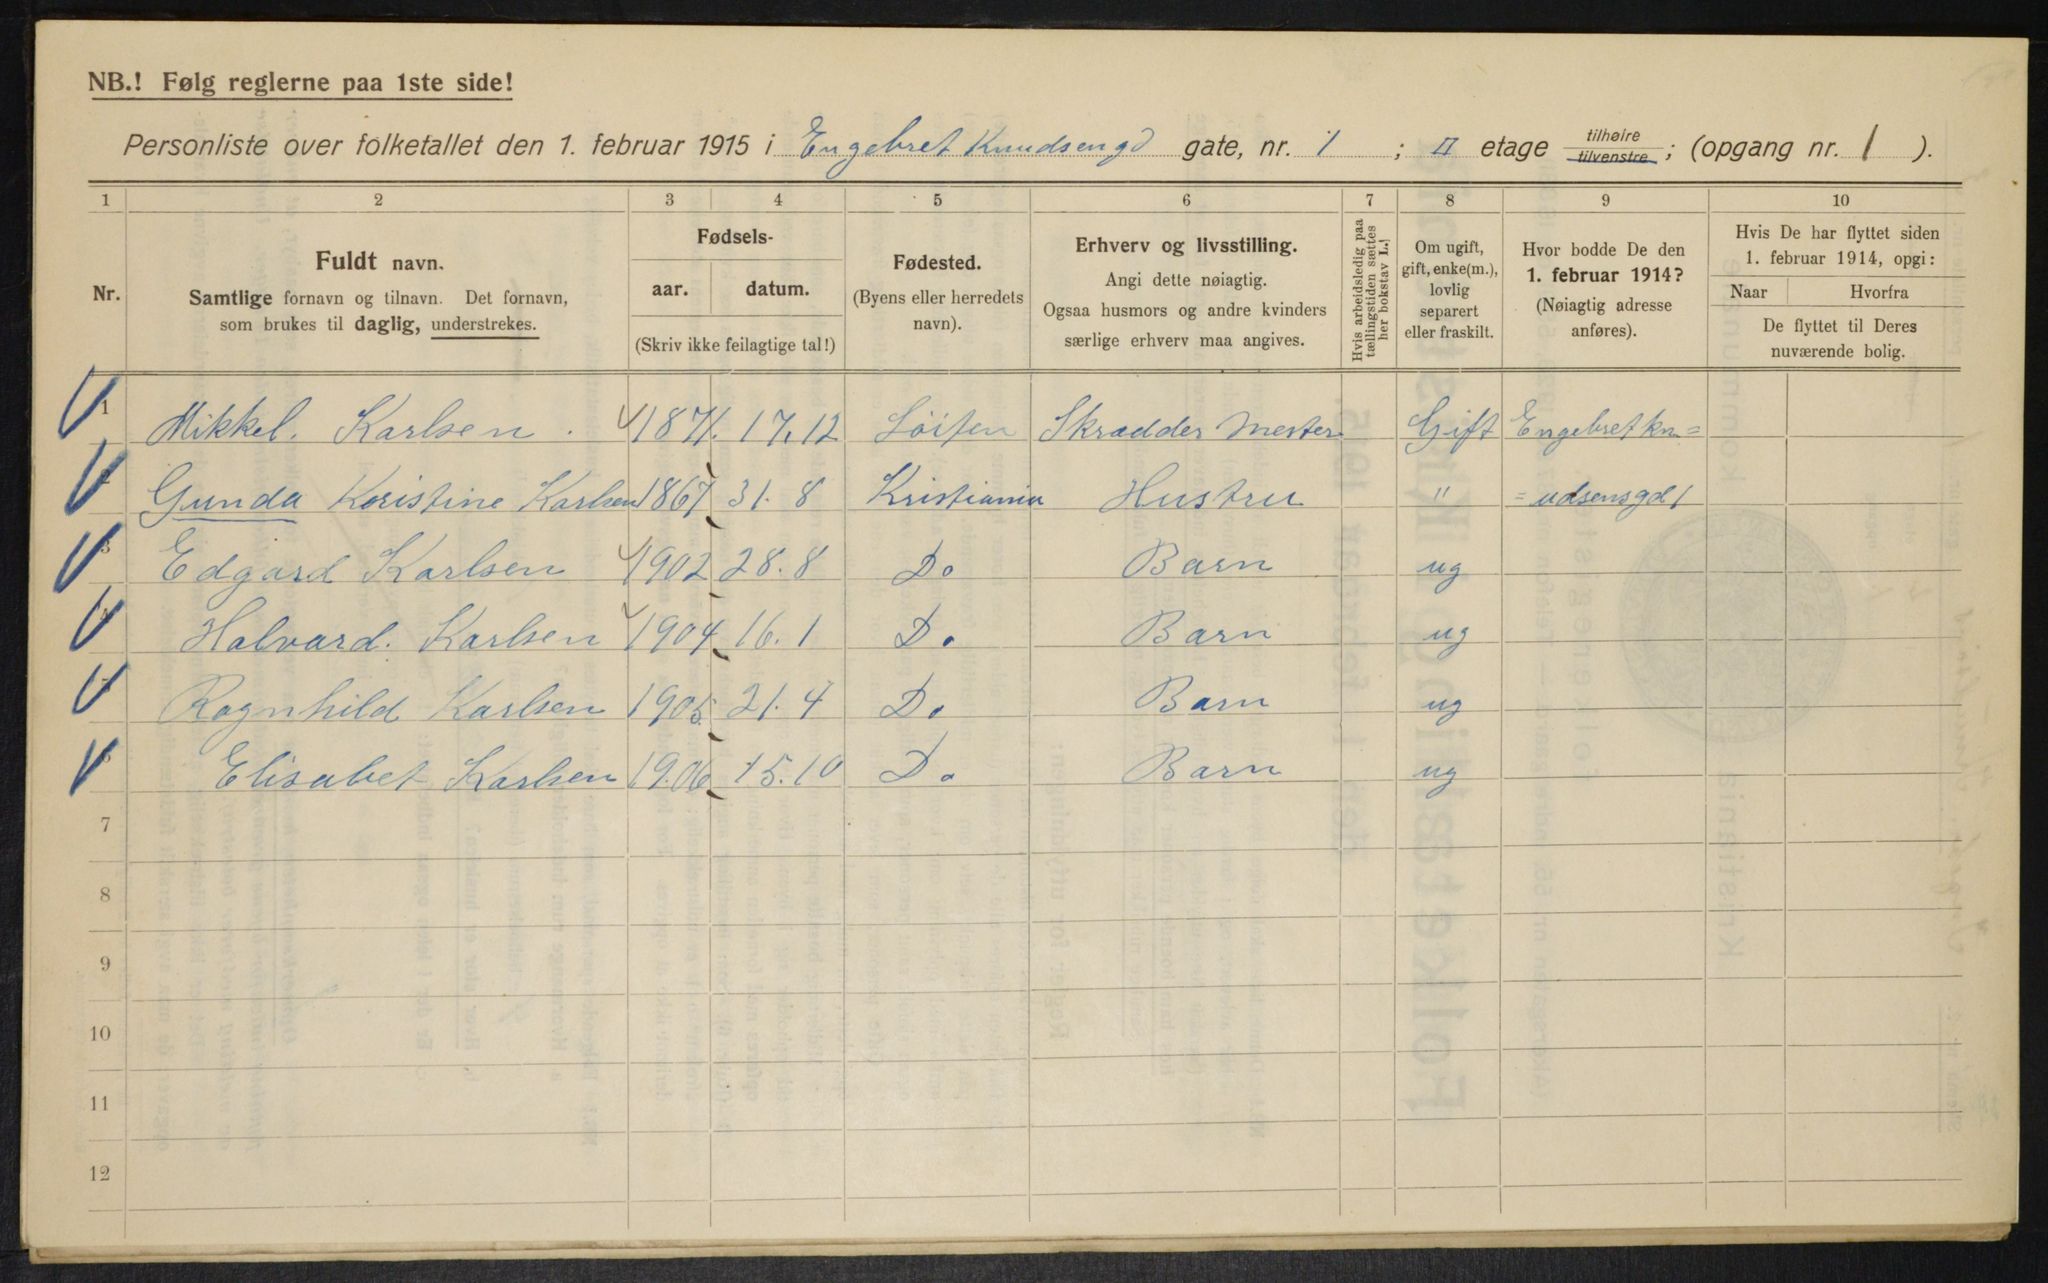 NB.! Følg reglerne paa 1ste side!
Personliste over folketallet den 1. februar 1915 i Engebret Knudsengd gate, nr. 1 ; II etage tilhøire tilvenstre ; (opgang nr. 1 ).
1 2 3 4 5 6 7 8 9 10
Nr.
Fuldt navn.
Samtlige fornavn og tilnavn. Det fornavn,
som brukes til daglig, understrekes.
Fødsels-
aar. datum.
(Skriv ikke feilagtige tal!)
Fødested.
(Byens eller herredets
navn).
Erhverv og livsstilling.
Angi dette nøiagtig.
Ogsaa husmors og andre kvinders
særlige erhverv maa angives.
Hvis arbeidsledig paa
tællingstiden sættes
her bokstav L.!
Om ugift,
gift, enke(m.),
lovlig
separert
eller fraskilt.
Hvor bodde De den
1. februar 1914?
(Nøiagtig adresse
anføres).
Hvis De har flyttet siden
1. februar 1914, opgi:
Naar Hvorfra
De flyttet til Deres
nuværende bolig.
1 Mikkel. Karlsen. 1871. 17.12 Løiten Skrædder Mester Gift Engebret kn=
2 Gunda Kristine Karlsen 1867 31.8 Kristiania Hustru " =udsensgd 1
3 Edgard Karlsen 1902 28.8 Do Barn ug
4 Halvard. Karlsen 1904 16.1 Do Barn ug
5 Ragnhild Karlsen 1905 21.4 Do Barn ug
6 Elisabet Karlsen 1906 15.10 Do Barn ug
7
8
9
10
11
12